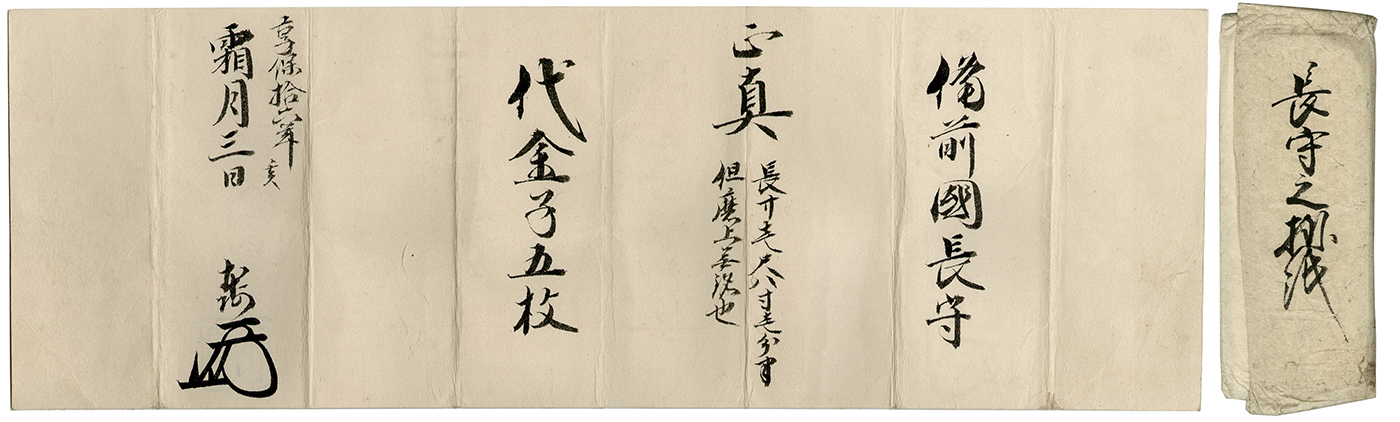 長守之折紙
備前國長守
正真
長サ壱尺八寸壱分半
但磨上無銘也
代金子五枚
享保拾六年 亥
霜月三日
本阿